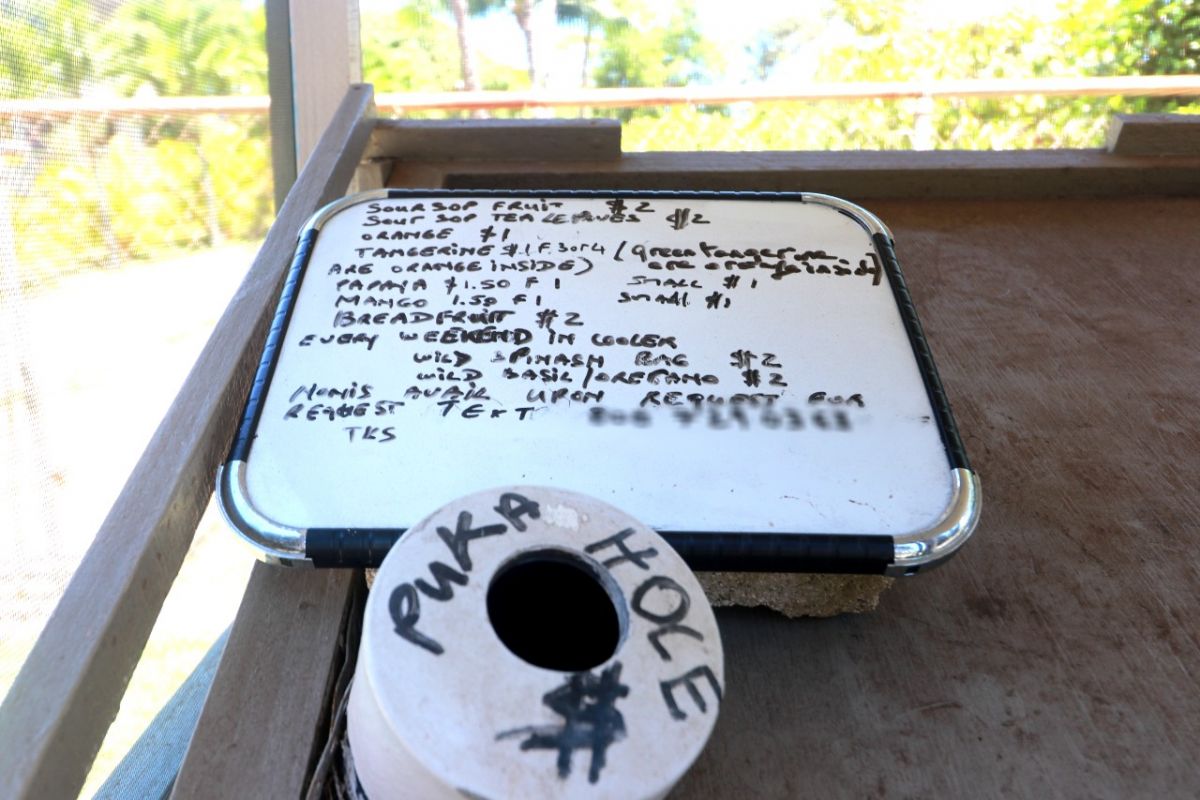 SOURSOP FRUIT $2
SOUR SOP TEA LEAVES $2
ORANGE $1
TANGERINE $.1 F. 3 or 4 (green tangerine
ARE ORANGE INSIDE) are orange inside)
PAPAYA $1.50 F 1 SMALL $1
MANGO 1.50 F 1 SMALL $1
BREADFRUIT $2
EVERY WEEKEND IN COOLER
WILD SPINASH BAG $2
WILD BASIL/OREGANO $2
NONIS AVAIL UPON REQUEST FOR
REQUEST TEXT
TKS
PUKA HOLE
$